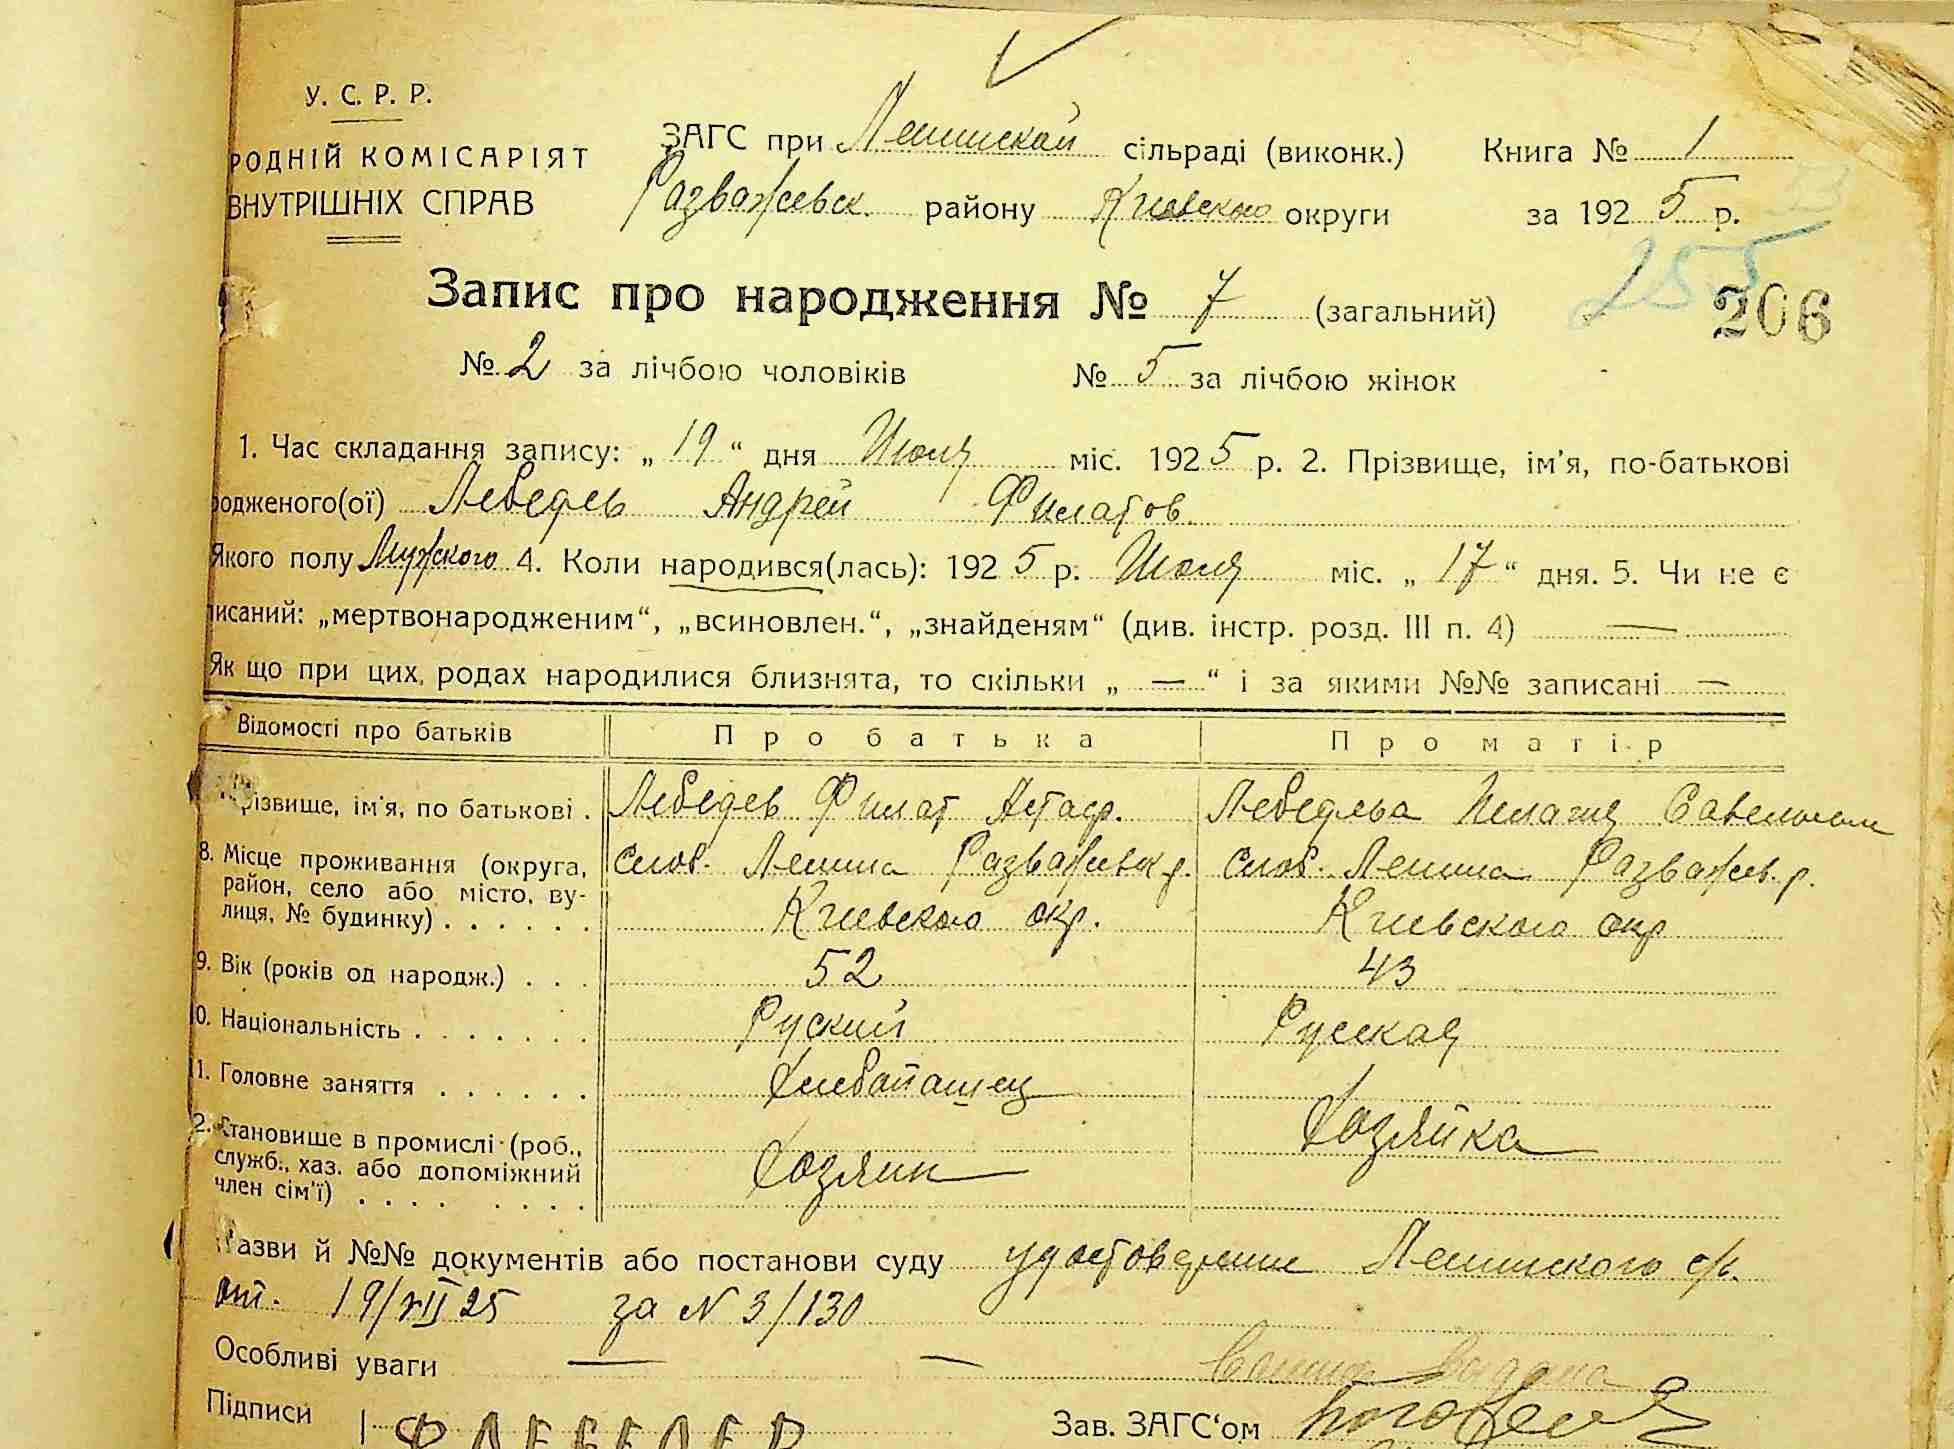 У. С. Р. Р.
РОДНІЙ КОМІСАРІЯТ
ВНУТРІШНІХ СПРАВ
ЗАГС при Ленинской сільраді (виконк.) Книга № 1
Разважевск. району Киевского округи за 1925 р.
255
206
Запис про народження № 7 (загальний)
№ 2 за лічбою чоловіків № 5 за лічбою жінок
1. Час складання запису: „ 19 “ дня Июля міс. 1925 р. 2. Прізвище, ім'я, по-батькові
родженого(ої) Лебедев Андрей Филатов
Якого полу Мужского 4. Коли народився(лась): 1925 р. Июля міс. „ 17 “ дня. 5. Чи не є
писаний: „мертвонародженим“, „всиновлен.“, „знайденям“ (див. інстр. розд. III п. 4) —
Як що при цих, родах народилися близнята, то скільки „ — “ і за якими №№ записані —
Відомості про батьків Про батька Про матір
різвище, ім'я, по батькові . Лебедев Филат Астаф. Лебедева Пелагия
8. Місце проживання (округа, район, село або місто, вулиця, № будинку) . . . . . . слоб. Ленина Разважевск р. слоб. Ленина Разважев. р.
Киевского окр. Киевского окр
9. Вік (років од народж.) . . . 52 43
0. Національність . . . . . . . Руский Руская
11. Головне заняття . . . . . . Хлебопашец
2. Становище в промислі (роб., служб., хаз. або допоміжний член сім'ї) . . . . . . . . Хозяин Хозяйка
Назви й №№ документів або постанови суду удостоверение Ленинского с/с.
от. 19/VII 25 за N 3/130
Особливі уваги — —
выдана
Підписи Ф ЛЕБЕДЕВ Зав. ЗАГС'ом